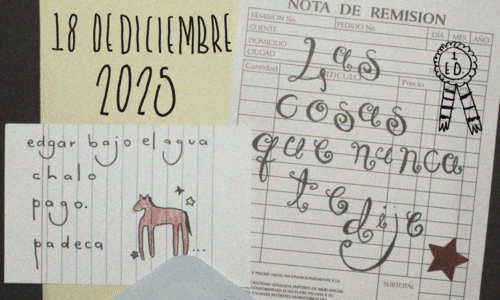 18 DE DICIEMBRE
2025
edgar bajo el agua
chalo
pago.
padeca
...
NOTA DE REMISION
REMISION No.
PEDIDO No.
CLIENTE
DIA MES AÑO
DOMICILIO
CIUDAD
Cantidad
ARTICULO
Precio
Las
cosas
que nunca
te dije
1
ED.
SUBTOTAL